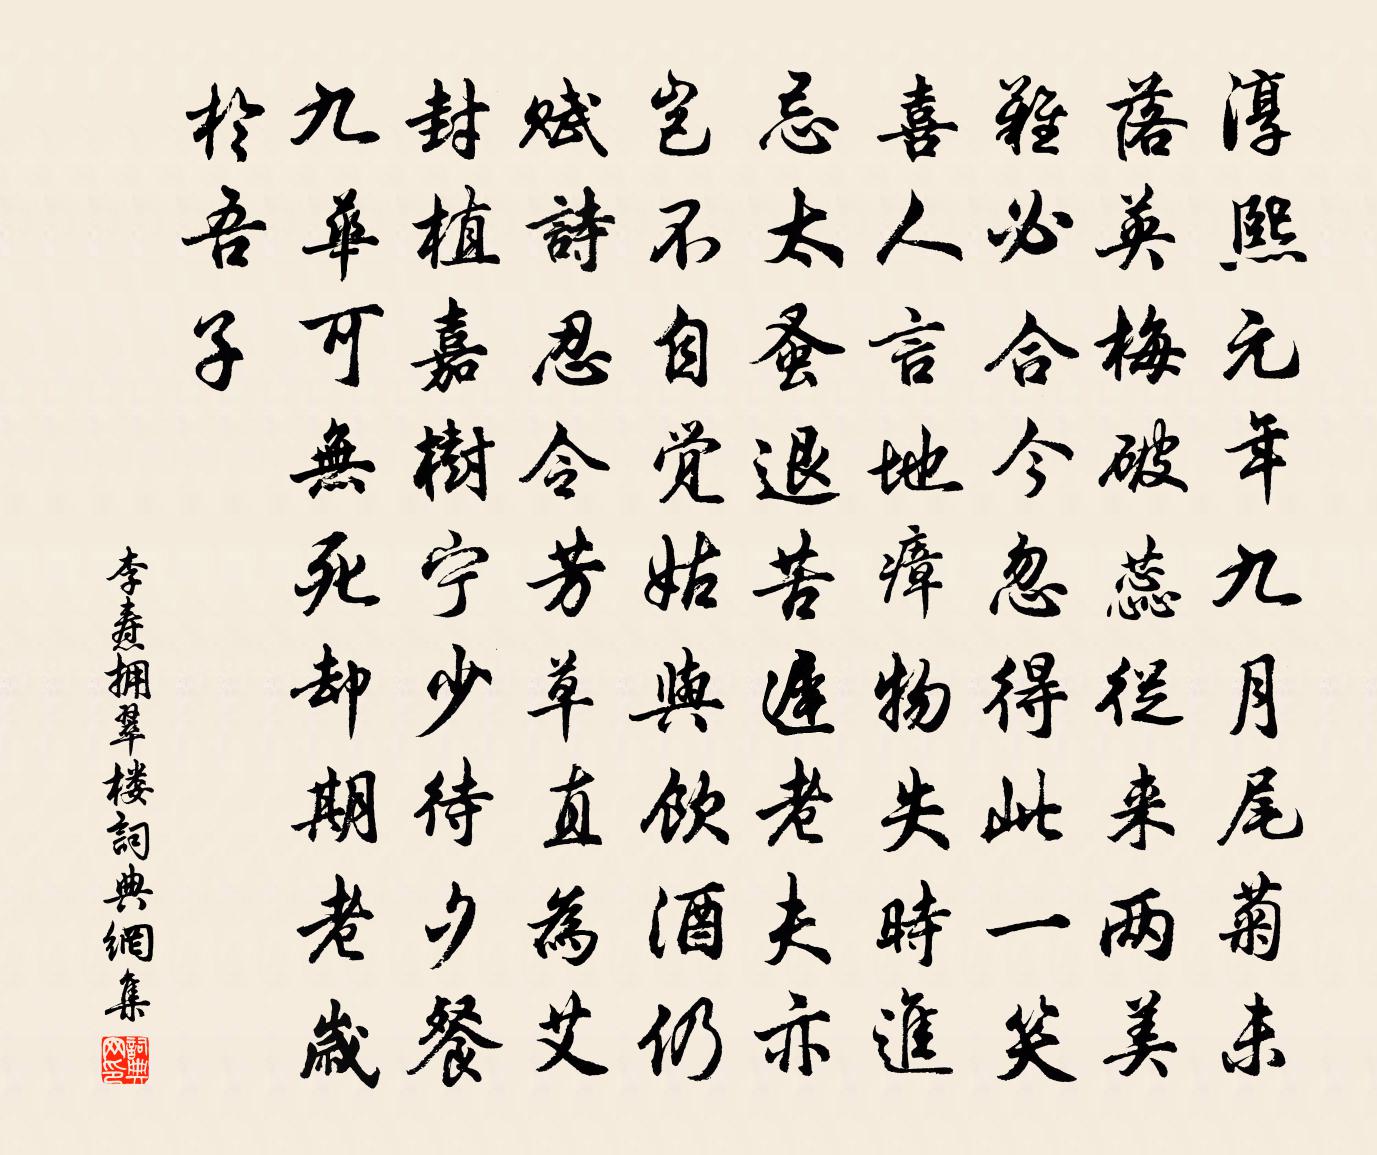 淳熙元年九月尾菊未
落英梅破蕊從来两美
難必合今忽得此一笑
喜人言地瘴物失時進
忌太蚤退苦遲老夫亦
岂不自覚姑與飲酒仍
赋詩忍令芳草直為艾
封植嘉樹宁少待夕餐
九華可無死却期老歲
於吾子
李燾拥翠楼詞典網集
詞典网印